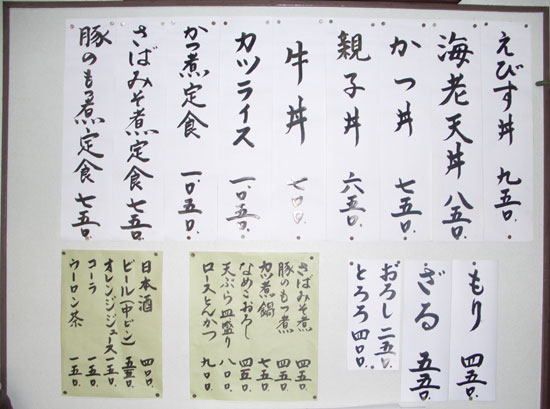 えびす丼 九五〇.
海老天丼 八五〇.
かつ丼 七五〇.
親子丼 六五〇.
牛丼 七〇〇.
カツライス 一、〇五〇.
かつ煮定食 一、〇五〇.
さばみそ煮定食 七五〇.
豚のもつ煮定食 七五〇.
もり 四五〇.
ざる 五五〇.
おろし 二五〇.
とろろ 四〇〇.
さばみそ煮 四五〇.
豚のもつ煮 四五〇.
カツ煮鍋 七五〇.
なめこおろし 四五〇.
天ぷら皿盛り 八〇〇.
ロースとんかつ 九〇〇.
日本酒 四〇〇.
ビール(中ビン) 五五〇.
オレンジジュース 一五〇.
コーラ 一五〇.
ウーロン茶 一五〇.